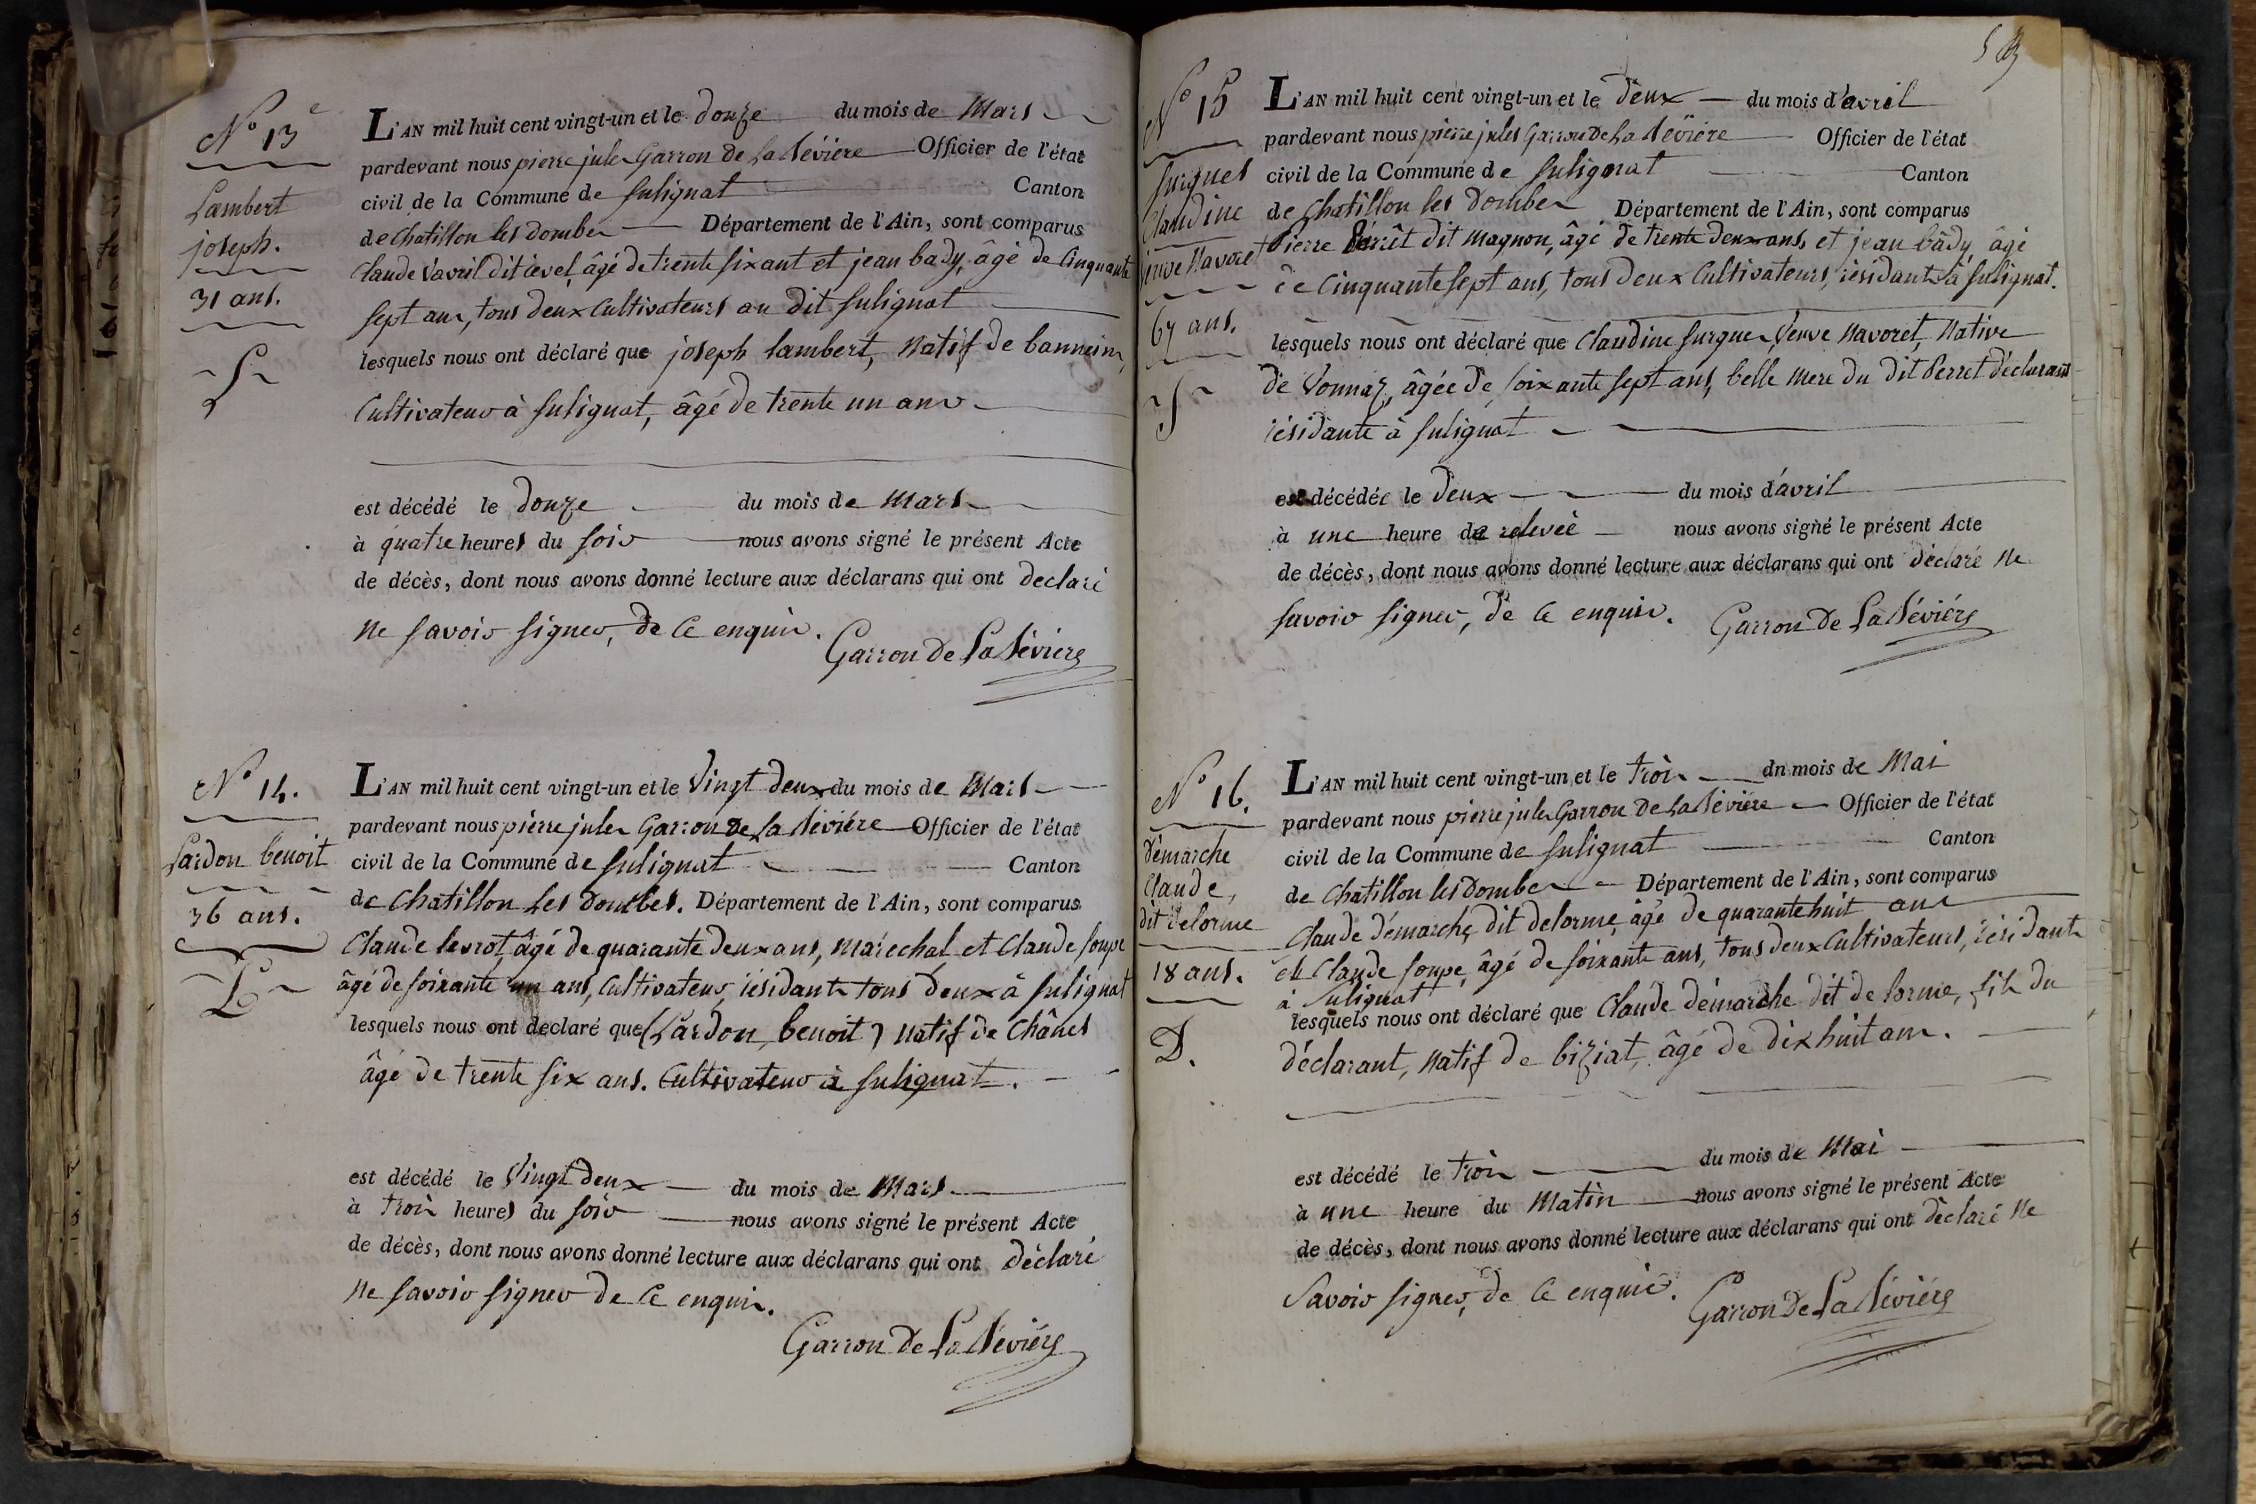 N.° 13.e
Lambert
joseph.
31 ans.
L'AN mil huit cent vingt-un et le douze du mois de Mars
pardevant nous pierre jules Garron de La Sévière Officier de l'état
civil de la Commune de Sulignat Canton
de Chatillon les dombes Département de l'Ain, sont comparus
Claude Cavril dit âgé de trente six ans et jean bady, âgé de Cinquante
sept ans, tous deux Cultivateurs au dit Sulignat
lesquels nous ont déclaré que joseph Lambert, Natif de banneins,
Cultivateur à Sulignat, âgé de trente un ans
est décédé le douze du mois de Mars
à quatre heures du soir nous avons signé le présent Acte
de décès, dont nous avons donné lecture aux déclarans qui ont declaré
Ne savoir signer, de ce enquis.
Garron De La Sévière
N.° 14.
Lardon benoit
36 ans.
L.
L'AN mil huit cent vingt-un et le Vingt deux du mois de Mars
pardevant nous pierre jules Garron De La Sévière Officier de l'état
civil de la Commune de Sulignat Canton
de Chatillon Les Dombes. Département de l'Ain, sont comparus
Claude Levrot, âgé de quarante deux ans, Maréchal et Claude Soupe
âgé de soixante un ans, Cultivateur, résidants tous deux à Sulignat
lesquels nous ont declaré que (Lardon, benoit) Natif de Chânes
âgé de trente six ans. Cultivateur à Sulignat.
est décédé le Vingt deux du mois de Mars
à trois heures du soir nous avons signé le présent Acte
de décès, dont nous avons donné lecture aux déclarans qui ont déclaré
Ne savoir signer de ce enquis.
Garron De La Sévière
N.° 15
Surgues
Claudine
veuve Navoret
67 ans.
L'AN mil huit cent vingt-un et le deux du mois d'avril
pardevant nous pierre jules Garron De La Sévière Officier de l'état
civil de la Commune de Sulignat Canton
de Chatillon les Dombes Département de l'Ain, sont comparus
Pierre Perrêt dit Magnon, âgé de trente deux ans, et jean bady âgé
de Cinquante sept ans, tous deux Cultivateurs, résidants à Sulignat.
lesquels nous ont déclaré que Claudine Surgues Veuve Navoret, Native
de Vonnaz, âgée de soixante sept ans, belle Mere du dit Perret déclarant
résidante à Sulignat
est décédée le deux du mois d'avril
à une heure de relevée nous avons signé le présent Acte
de décès, dont nous avons donné lecture aux déclarans qui ont déclaré ne
savoir signer, de ce enquis. Garron De La Sévière
N.° 16.
Démarche
Claude,
dit Delorme
18 ans.
D.
L'AN mil huit cent vingt-un et le trois dn mois de Mai
pardevant nous pierre jules Garron De La Sévière Officier de l'état
civil de la Commune de Sulignat Canton
de Chatillon les Dombes Département de l'Ain, sont comparus
Claude démarche, dit delorme, âgé de quarante huit ans
et Claude Soupe, âgé de soixante ans, tous deux Cultivateurs, résidants
à Sulignat
lesquels nous ont déclaré que Claude démarche dit de lorme, fils du
déclarant, Natif de biziat, âgé de dix huit ans.
est décédé le trois du mois de Mai
à une heure du Matin nous avons signé le présent Acte
de décès, dont nous avons donné lecture aux déclarans qui ont declaré ne
Savoir signer, de ce enquis. Garron De La Sévière